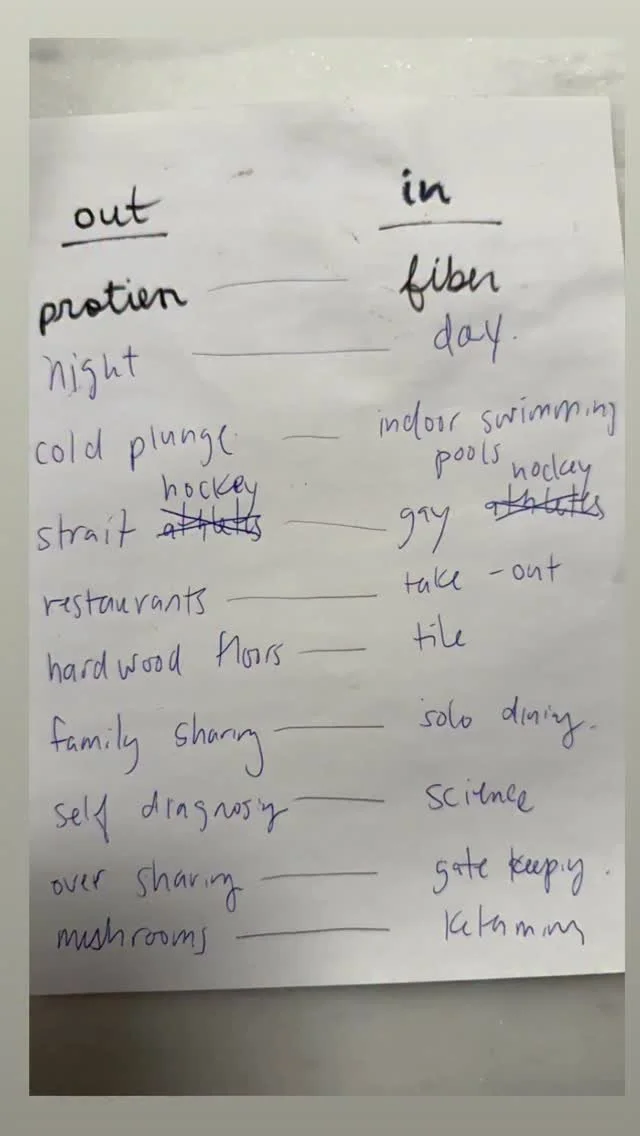 out in
protien fiber
night day.
cold plunge indoor swimming
pools
hockey hockey
strait athletes gay athletes
restaurants take-out
hardwood floors tile
family sharing solo dining.
self diagnosing science
over sharing gate keeping.
mushrooms ketamine